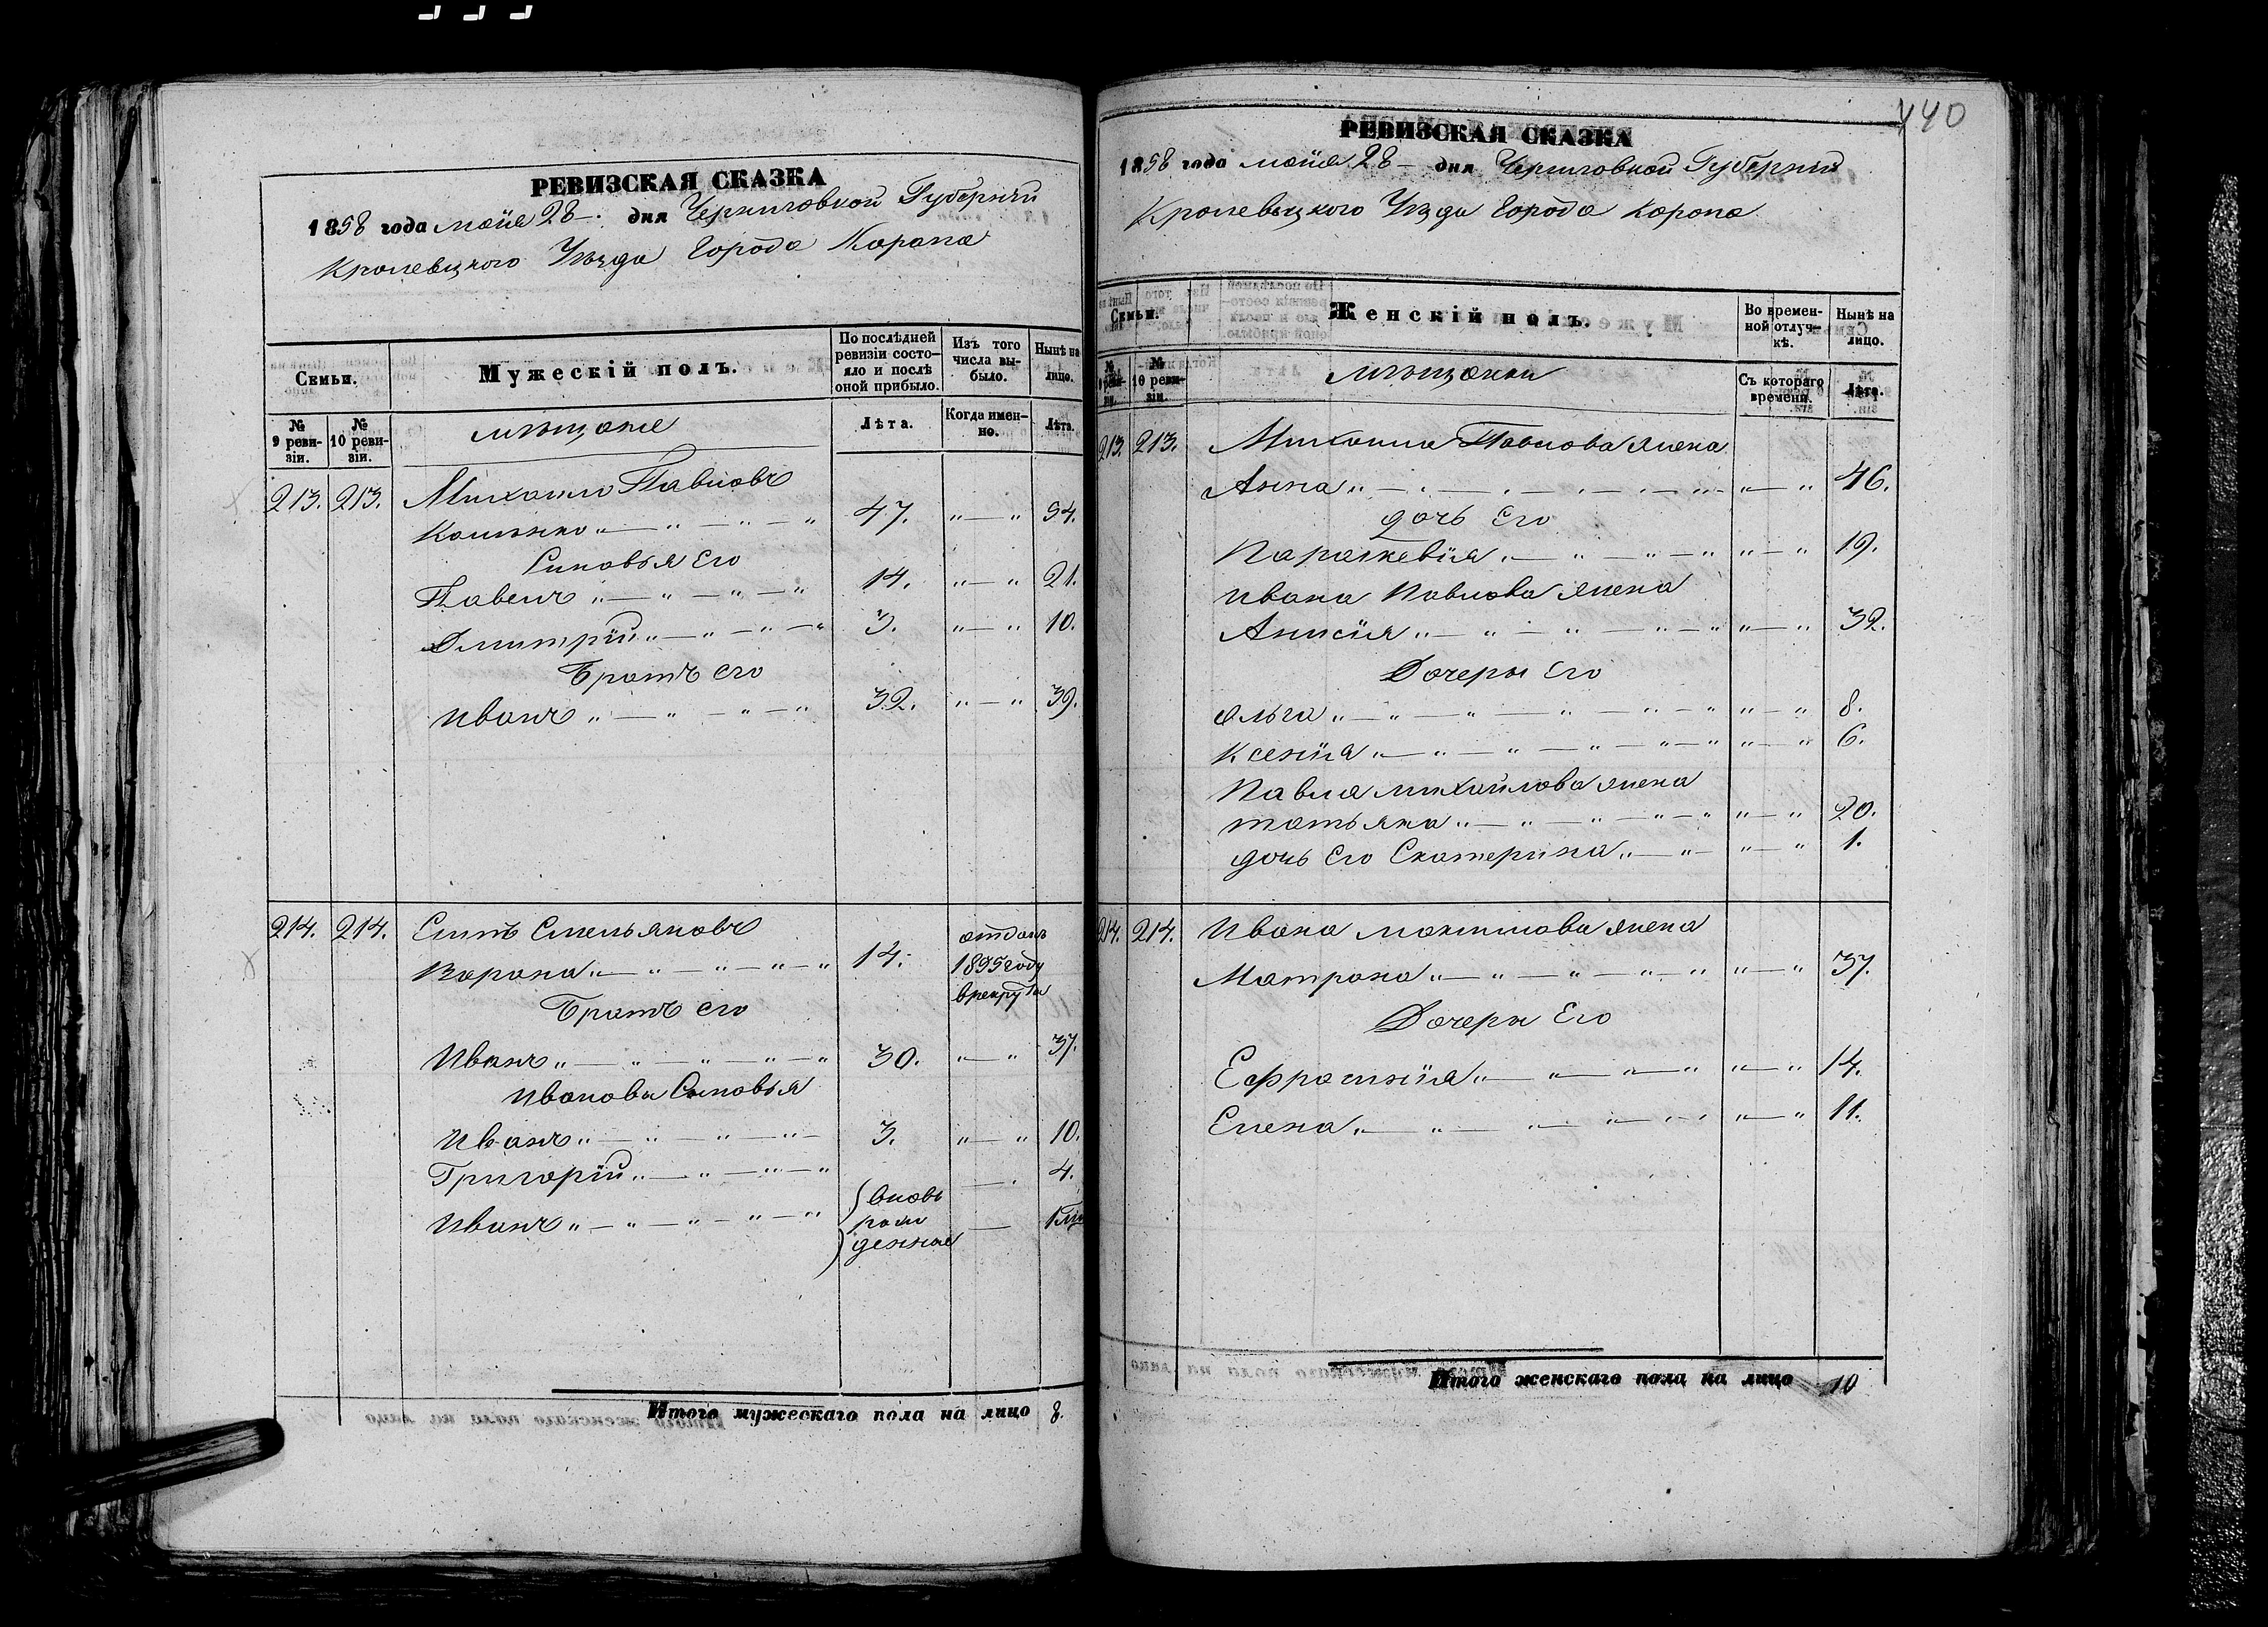 РЕВИЗСКАЯ СКАЗКА
1858 года маія 28 дня Черниговской Губерніи
Кролевецкого Уѣзда Города Коропа
Семьи.
Мужескій полъ.
По послѣдней ревизіи состояло и послѣ оной прибыло.
Изъ того числа выбыло.
Нынѣ на лицо.
№ 9 ревизіи.
№ 10 ревизіи.
мѣщане
Лѣта.
Когда именно.
Лѣта.
213. 213. Михаило Павловъ
47. „—„ 54.
Сыновья Его
Павелъ „—„—„—„ 14. „—„ 21.
Дмитрій „—„—„—„ 3. „—„ 10.
Братъ его
Иванъ „—„—„—„ 32. „—„ 39.
214. 214. Емельяновъ
Ворона „—„—„—„—„ 14. отданъ 1855 году в рекруты
Братъ его
Иванъ „—„—„—„—„ 30. „—„ 37.
Ивановы Сыновья
Иванъ „—„—„—„— 3. „—„ 10.
Григорій „—„—„—„ — 4.
Иванъ „—„—„—„—„ вновь рожденные — 1
Итого мужескаго пола на лицо 8.
440
РЕВИЗСКАЯ СКАЗКА
1858 года маія 28 – дня Черниговской Губерніи
Кролевецкого Уѣзда Города Коропа
Семьи.
Женскій полъ.
Во временной отлучкѣ.
Нынѣ на лицо.
№ 9 ревизіи.
№ 10 ревизіи.
мѣщанки
Съ котораго времени.
Лѣта.
213. 213. Михаила Павлова жена
Анна „—„—„—„—„ „—„ 46.
дочь Его
Параскевія „—„—„—„ „—„ 19.
Ивана Павлова жена
Анисія „—„—„—„—„ „—„ 32.
Дочери Его
Ольга „—„—„—„—„—„ „—„ 8.
Ксенія „—„—„—„—„—„ „—„ 6.
Павла михайлова жена
татьяна „—„—„—„—„ „—„ 20.
дочь Его Екатерина „—„— „—„ 1.
214. 214. Ивана жена
Матрона „—„—„—„—„ „—„ 37.
Дочери Его
Ефросинія „—„—„—„ „—„ 14.
Елена „—„—„—„—„ „—„ 11.
Итого женскаго пола на лицо 10